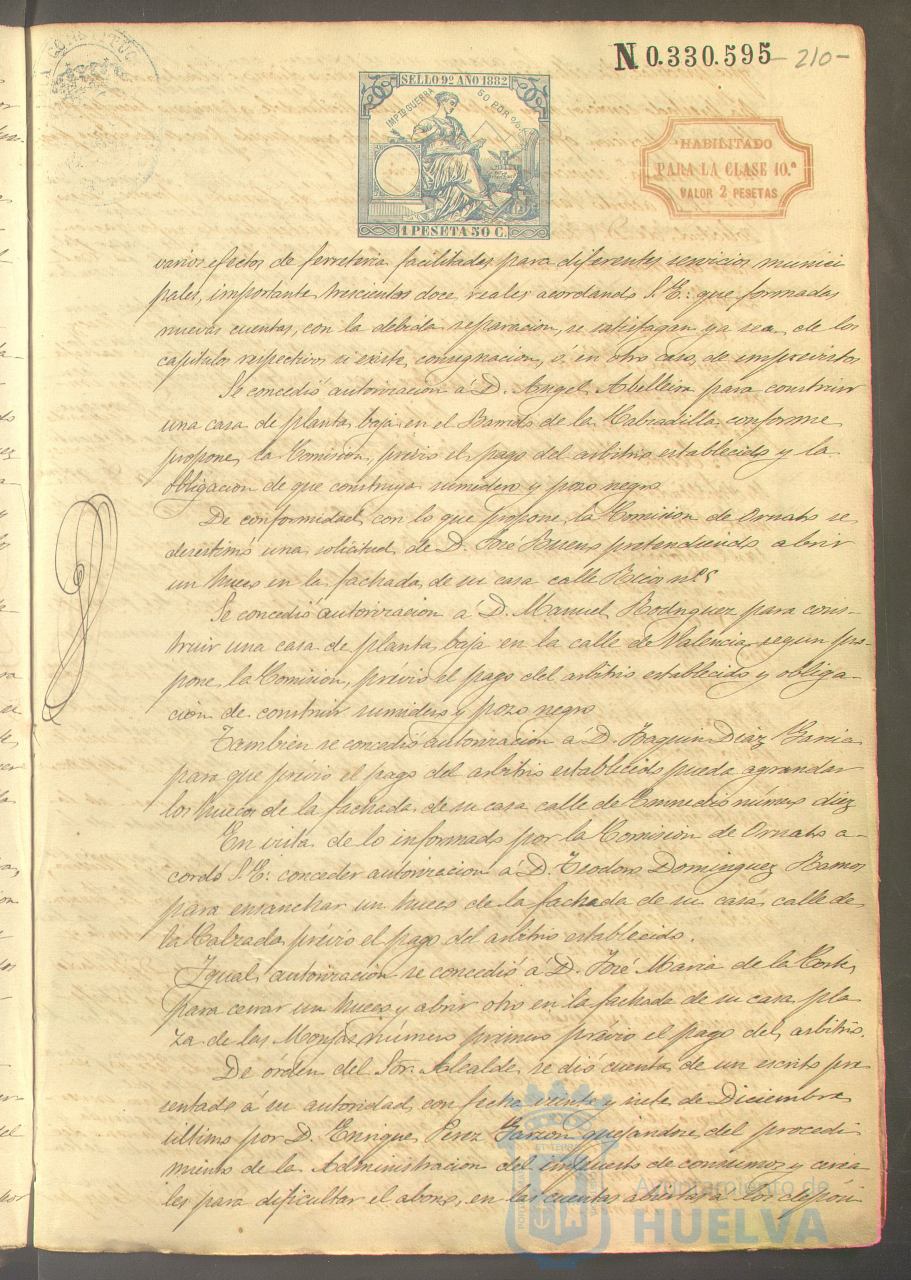 N. 0.330.595 - 210 -
SELLO 9º AÑO 1882
IMPTO GUERRA 50 POR %
1 PESETA 50 C.
HABILITADO
PARA LA CLASE 10.ª
VALOR 2 PESETAS
varios efectos de ferreteria facilitados para diferentes servicios munici
pales, importante trescientos doce reales acordando S. E.: que formadas
nuevas cuentas, con la debida separacion, se satisfagan ya sea de los
capitulos respectivos si existe consignacion, ó en otro caso, de imprevistos
Se concedió autorizacion á D. Angel Abelleira para construir
una casa de planta baja en el Barrio de la Calzadilla conforme
propone la Comision, prévio el pago del arbitrio establecido y la
obligacion de que construya sumidero y pozo negro
De conformidad con lo que propone la Comision de Ornato se
desestimó una solicitud de D. José pretendiendo abrir
un hueco en la fachada de su casa calle nº 5
Se concedió autorizacion á D. Manuel Rodriguez para cons-
truir una casa de planta baja en la calle de Valencia, segun pro-
pone la Comision, prévio el pago del arbitrio establecido y obliga-
ción de construir sumidero y pozo negro
Tambien se concedió autorizacion á D. Joaquin Diaz Garcia
para que prévio el pago del arbitrio establecido pueda agrandar
los huecos de la fachada de su casa calle de Enmedio número diez
En vista de lo informado por la Comision de Ornato a-
cordó S. E.: conceder autorizacion á D. Teodoro Dominguez Ramos
para ensanchar un hueco de la fachada de su casa calle de
la Calzada, prévio el pago del arbitrio establecido.
Igual autorización se concedió á D. José Maria de la Corte
para cerrar un hueco y abrir otro en la fachada de su casa pla
za de las Monjas número primero prévio el pago del arbitrio.
De órden del Sor. Alcalde se dió cuenta de un escrito pre
sentado á su autoridad con fecha veinte y siete de Diciembre
último por D. Enrique Perez Garzon quejandose del procedi
miento de la Administracion del impuesto de consumos y cerea
les para dificultar el abono, en las cuentas abiertas á los depósi
Ayuntamiento de
HUELVA